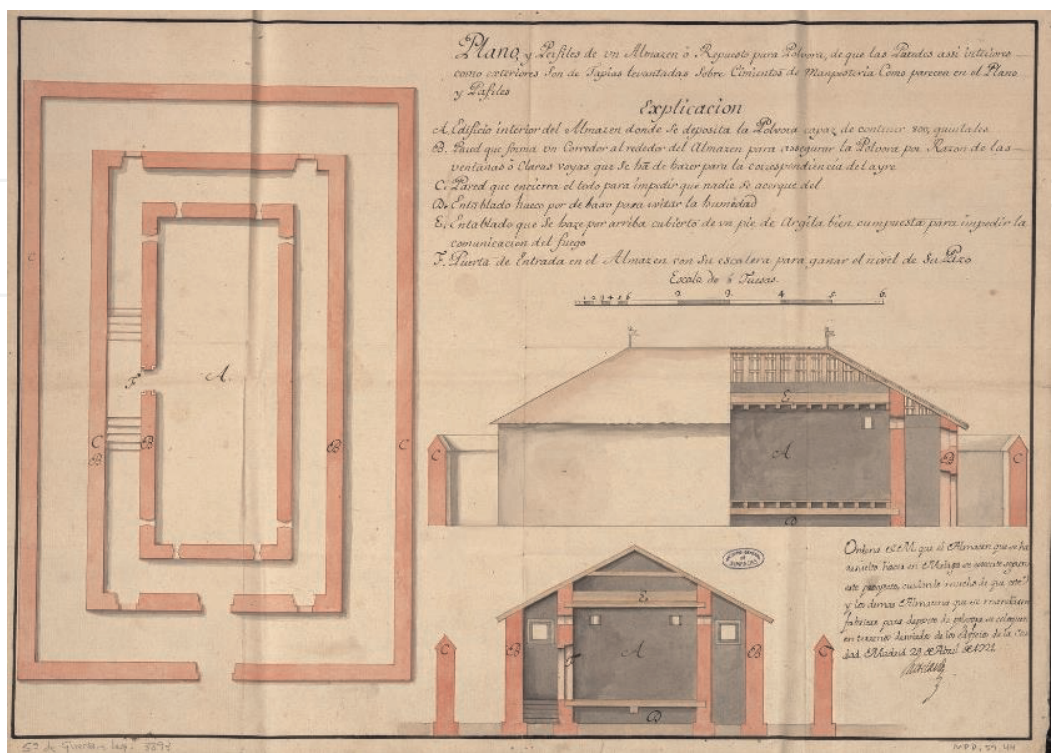 Plano, y Perfiles de vn Almazen ò Repuesto para Polvora, de que las Paredes assi interiores
como exteriores Son de Tapias levantadas Sobre Cimientos de Manposteria Como parecen en el Plano
y Pafiles
Explicacion
A. Edificio interior del Almazen donde se deposita la Polvora capaz de contener 800, quintales.
B. Pared que forma vn Corredor al rededor del Almazen para assegurar la Polvora por Razon de las
ventanas ò Claras voyas que se hà de hazer para la correspondencia del ayre
C. Pared que encierra el todo para impedir que nadie se acerque del
D. Entablado hueco por de baxo para evitar la humidad
E. Entablado que se haze por arriba cubierto de vn pie de Argila bien cumpuesta para impedir la
comunicacion del fuego
F. Puerta de Entrada en el Almazen con su escalera para ganar el nivel de su Pizo
Escala de 6 Tuesas.
1 2 3 4 5 6 2 3 4 5 6
C
F
A
C
B
B
B
C
E
A
D
C
B
C
E
A
D
C
B
F
B
C
Ordena el que el Almazen que se ha
resuelto hacer en Malaga se execute segun
este cuidando mucho de que este
y los demas Almazenes que se mandasen
fabricar para deposito de polvora se coloquen
en terreno desviado de los edificios de la Ciu
dad. Madrid 29 de Abril de 1721
ARCHIVO GENERAL
DE
SIMANCAS
Gª de Guerra leg.
M.P.D.